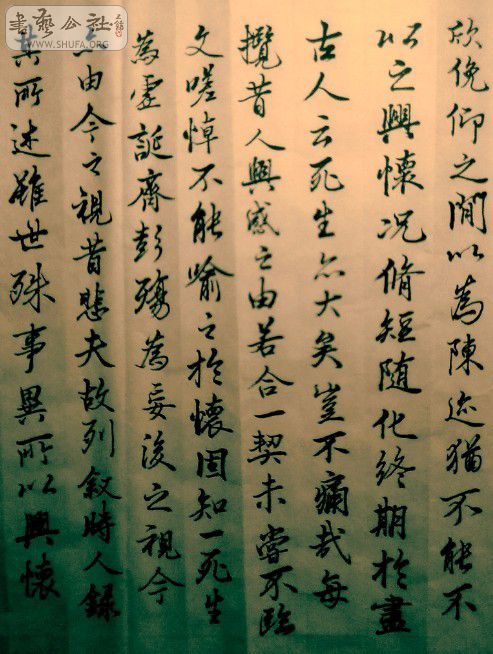 欣俛仰之閒以為陳迹猶不能不
以之興懷况脩短随化終期於盡
古人云死生亦大矣豈不痛哉每
攬昔人興感之由若合一契未嘗不臨
文嗟悼不能喻之於懷固知一死生
為虛誕齊彭殤為妄後之視今
亦由今之視昔悲夫故列敘時人錄
其所述雖世殊事異所以興懷
書藝公社
WWW.SHUFA.ORG